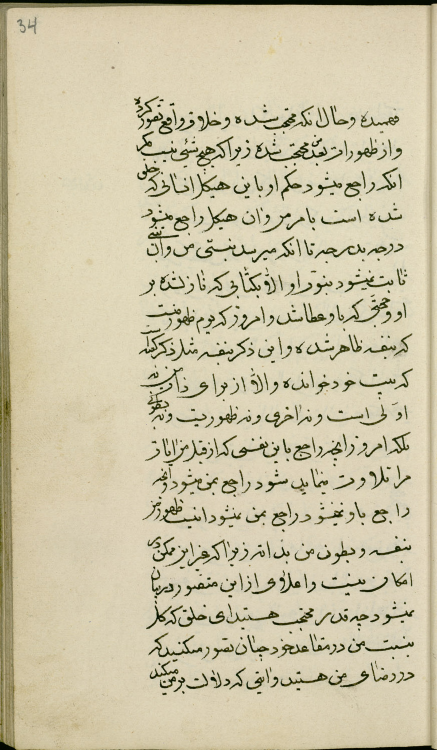 34
فهمیده و حال انکه محتجب شده و خلاف واقع تصور کرده
و از ظهورات بعد محتجب شده زیرا که هیچ شیئی نیست مگر
انکه راجع میشود حکم او باین هیکل انسانی که خلق
شده است بامر من و ان هیکل راجع میشود
درجه بدرجه تا انکه میرسد به نبیی من و ان نبی
ثابت نمیشود نبوة او الا بکتابی که نازل شده بر
او و حجتی که باو عطا شده و امروز که یوم ظهور منست
که بنفسه ظاهر شده و این ذکر بنفسه مثل ذکر کعبه است
که بیت خود خوانده و الا از برای ذات من نه
اولی است و نه اخری و نه ظهوریت و نه بطونی
بلکه امروز انچه راجع باین نفسی که از قبل من ایات
مرا تلاوت مینماید شود راجع بمن میشود و انچه
راجع باو نمیشود راجع بمن نمیشود انیست ظهور من
بنفسه و بطون من بذاته زیرا که غیر این ممکن در
امکان نیست و اعلای از این متصور در بیان
نمیشود چه قدر محتجب هستید ای خلق که کل
بنسبت من در مقاعد خود چنان تصور میکنید که
در رضای من هستید و ایتی که دلالت بر من میکند